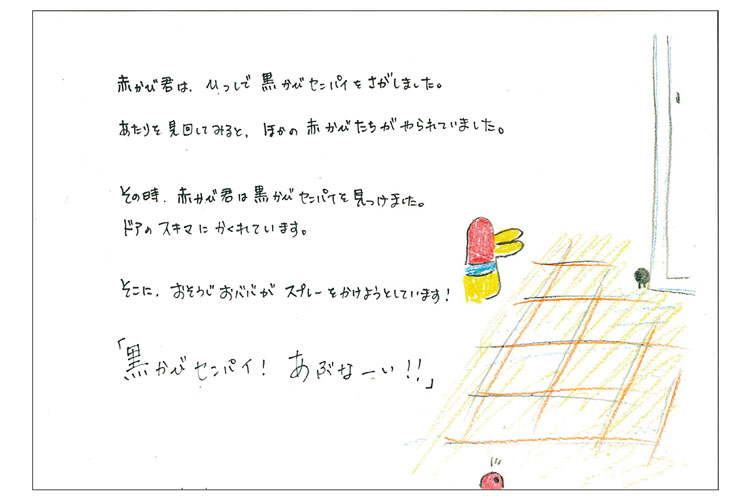 赤かび君は、ひっしで黒かびセンパイをさがしました。
あたりを見回してみると、ほかの赤かびたちがやられていました。
その時、赤かび君は黒かびセンパイを見つけました。
ドアのスキマにかくれています。
そこに、おそうじおババがスプレーをかけようとしています!
「黒かびセンパイ! あぶなーい!!」